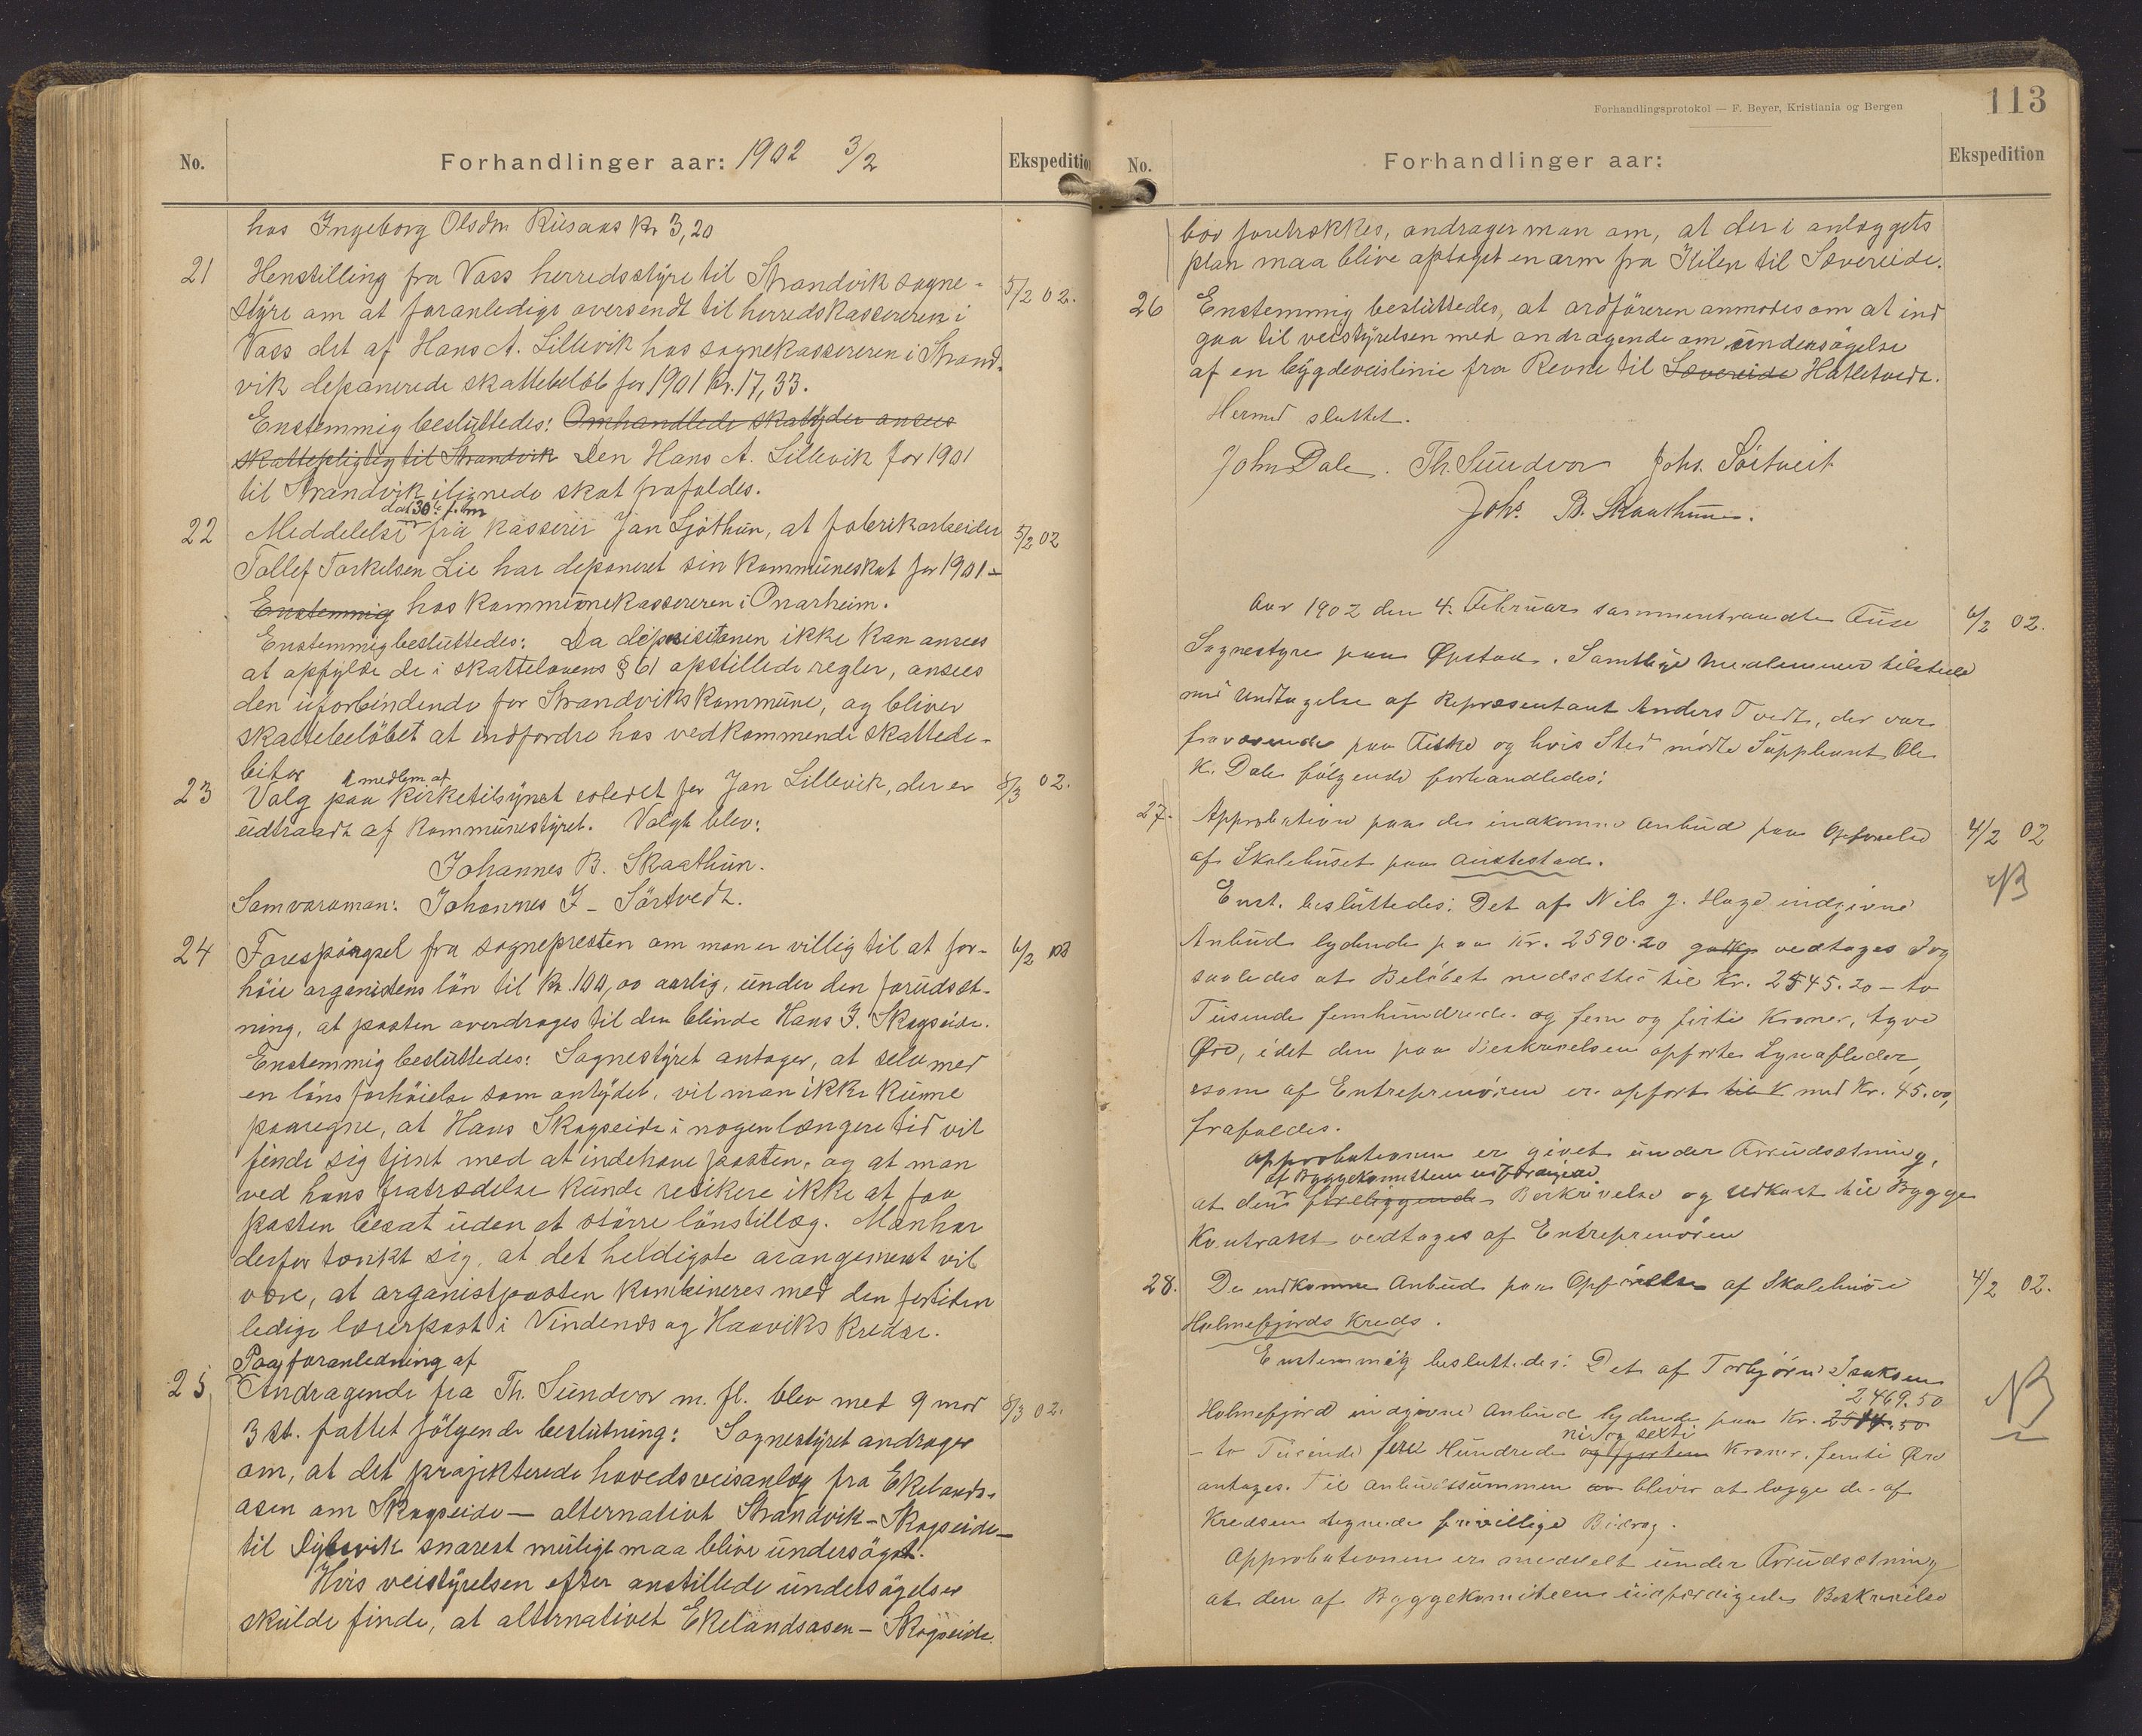 No. Forhandlinger aar: 1902 3/2 Ekspedition
hos Ingeborg Olsdtr Riisaas Kr 3,20
21 Henstilling fra Voss herredsstyre til Strandvik sogne- 5/2 02.
styre om at foranledige oversendt til herredskassereren i
Voss det af Hans A. Lillevik hos sognekassereren i Strand-
vik deponerede skattebeløb for 1901 Kr. 17,33.
Enstemmig besluttedes: Omhandlede skatyder ansees
skattepligtig til Strandvik Den Hans A. Lillevik for 1901
til Strandvik ilignede skat frafaldes.
dat 30te f. m
22 Meddelelse fra kasserer Jan Ljothun, at fabrikarbeider 5/2 02
Tollef Torkelsen Lie har deponeret sin kommuneskat for 1901 -
Enstemmig hos kommunekassereren i Onarheim.
Enstemmig besluttedes: Da depositionen ikke kan ansees
at opfylde de i skattelovens § 61 opstillede regler, ansees
den uforbindende for Strandviks kommune, og bliver
skattebeløbet at indfordre hos vedkommende skattede-
bitor
1 medlem af
23 Valg paa kirketilsynet istedet for Jan Lillevik, der er 8/3 02.
udtraadt af kommunestyret. Valgt blev:
Johannes B. Skaathun.
Som varaman: Johannes J - Sörtvedt.
24 Forespørgsel fra sognepresten om man er villig til at for- 6/2 02
höie organistens lön til kr. 100,00 aarlig, under den forudsæt-
ning, at posten overdrages til den blinde Hans J. Skogseide.
Enstemmig besluttedes: Sognestyret antager, at selv med
en lönsforhöielse som antydet, vil man ikke kunne
paaregne, at Hans Skogseide i nogen længere tid vil
finde sig tjent med at indehave posten, og at man
ved hans fratrædelse kunde resikere ikke at faa
posten besat uden et större lönstillæg. Man har
derfor tænkt sig, at det heldigste arangement vil
være, at organistposten kombineres med den fortiden
ledige lærerpost i Vindenes og Haaviks kredse.
Paa foranledning af
25 Andragende fra Th. Sundvor m. fl. blev med 9 mod 8/3 02.
3 st. fattet følgende beslutning: Sognestyret andrager
om, at det projekterede hovedsveisanlæg fra Ekelands-
osen om Skogseide — alternativt Strandvik - Skogseide —
til Dybsvik snarest muligt maa blive undersögt.
Hvis veistyrelsen efter anstillede undersøgelser
skulde finde, at alternativet Ekelandsosen - Skogseide
Forhandlingsprotokol — F. Beyer, Kristiania og Bergen
113
No. Forhandlinger aar: Ekspedition
bör foretrækkes, andrager man om, at der i anlæggets
plan maa blive optaget en arm fra Kilen til Sævereide.
26 Enstemmig besluttedes, at ordföreren anmodes om at ind
gaa til veistyrelsen med andragende om undersögelse
af en bygdeveislinie fra Revne til Sævereide Hatletvedt.
Hermed sluttet.
John Dale. Th. Sundvor Johs. Sörtveit
Johs. B. Skaathun.
Aar 1902 den 4. Februar sammentraadte Fuse 6/2 02.
Sognestyre paa Øpstad. Samtlige medlemmer tilstede
med Undtagelse af Repræsentant Anders Tvedt, der var
fraværende paa Fiske og hvis Sted mödte Suppleant Ole
K. Dale følgende forhandledes:
27. Approbation paa de indkomne Anbud paa Opförelse 4/2 02
af Skolehuset paa Austestad.
NB
Enst. besluttedes: Det af Nils J. Hage indgivne
Anbud lydende paa Kr. 2590.20 vedtages dog
saaledes at Beløbet nedsættes til Kr. 2545.20 - to
Tusende femhundrede og fem og firti Kroner, tyve
Øre, idet den paa Beskrivelsen opførte Lynafleder,
som af Entreprenören er opfört til K med Kr. 45.00,
frafaldes.
Approbationen er givet under Forudsætning,
af Byggekomitteen udfærdigede
at den foreliggende Beskrivelse og Udkast til Bygge
Kontrakt vedtages af Entreprenören
28. De indkomne Anbud paa Opförelse af Skolehus i 4/2 02.
Holmefjords Kreds.
Enstemmig besluttedes: Det af Torbjörn Isaksen
2469.50
NB
Holmefjord indgivne Anbud lydende paa Kr. 2514.50
ni og sexti
- to Tusinde fire Hundrede og fjorten Kroner, femti Øre
antages. Til Anbudssummen bliver at lægge de af
Kredsen tegnede frivillige Bidrag.
Approbationen er meddelt under Forudsætning
at den af Byggekomiteen udfærdigede Beskrivelse